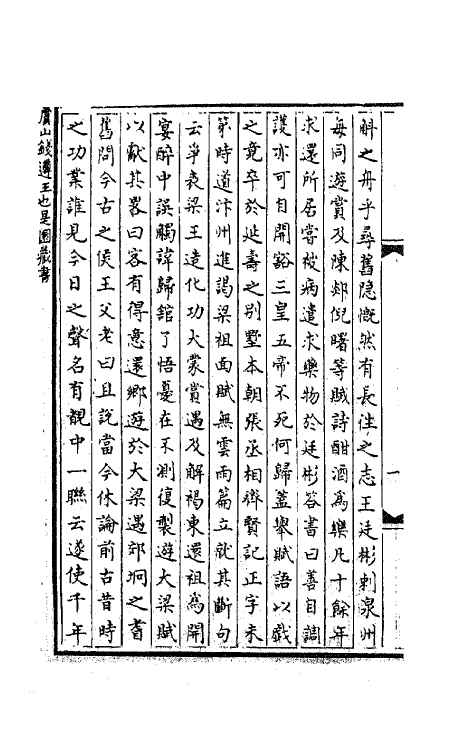 斛之舟乎尋舊隱慨然有長往之志王廷彬刺泉州
每同遊賞及陳郯倪曙等賦詩酣酒為樂凡十餘年
求還所居嘗被病遣求藥物於廷彬答書曰善自調
護亦可自開豁三皇五帝不死何歸蓋舉賦語以戲
之竟卒於延壽之別墅本朝張丞相齊賢記正字未
第時道汴州進謁梁祖面賦無雲雨篇立就其斷句
云爭表梁王造化功大蒙賞遇及解褐東還祖為開
宴醉中誤觸諱歸館了悟憂在不測復製遊大梁賦
以獻其畧曰客有得意還鄉遊於大梁遇郊坰之耆
舊問今古之侯王父老曰且說當今休論前古昔時
之功業誰見今日之聲名有覩中一聯云遂使千年
虞山錢遵王也是園藏書
一